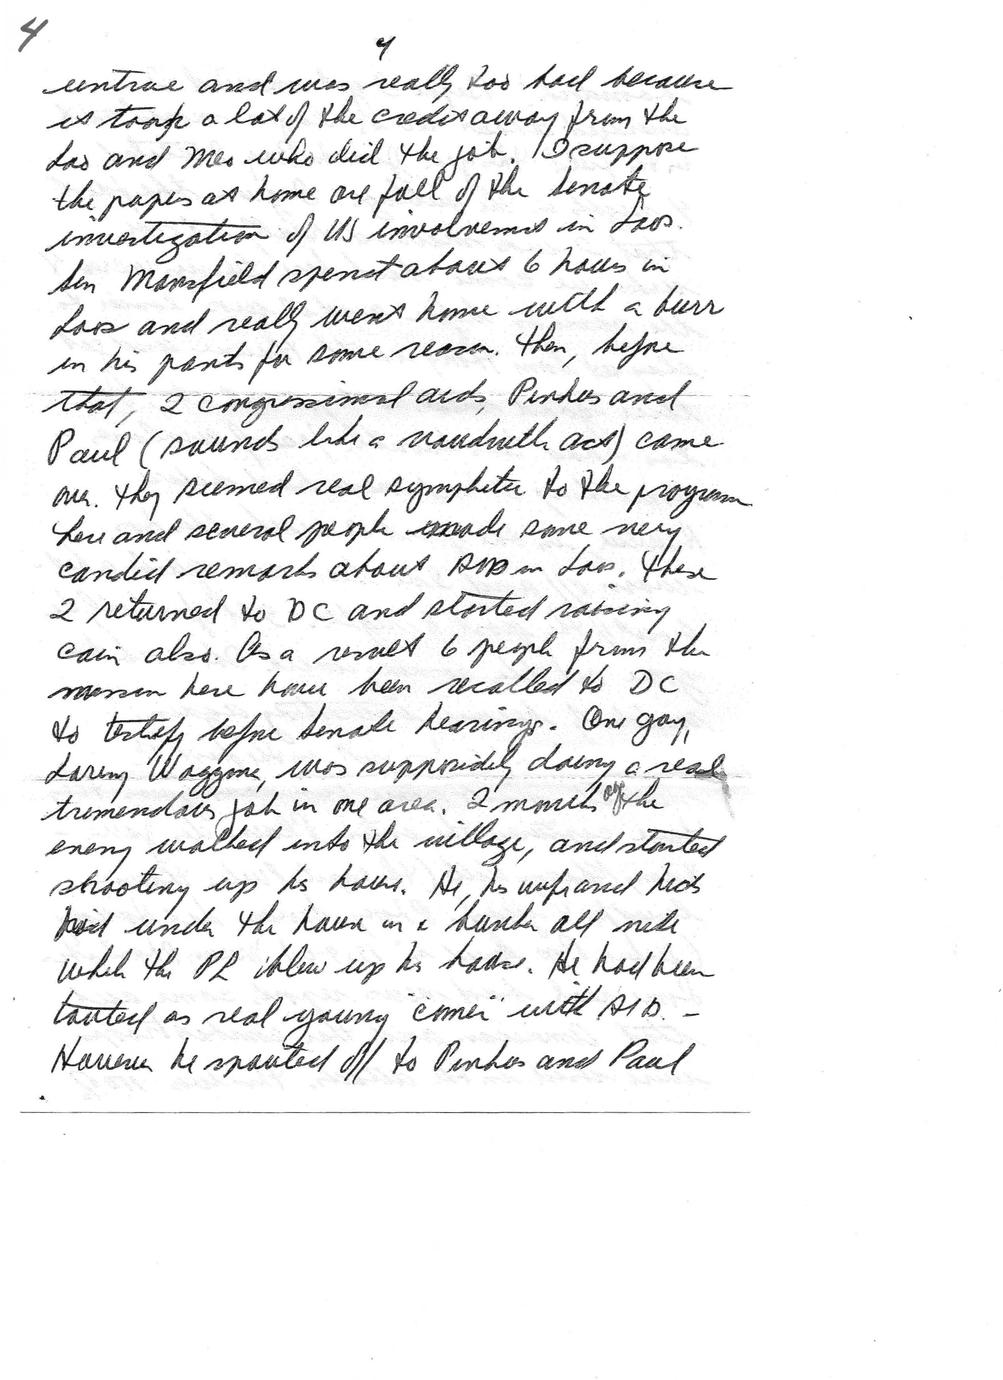 4
4
untrue and was really too bad because
it took a lot of the credit away from the
Lao and Meo who did the job. I suppose
the papers at home are full of the Senate
investigation of US involvement in Laos.
Sen Mansfield spent about 6 hours in
Laos and really went home with a burr
in his pants for some reason. Then, before
that, 2 congressional aids, Pinkus and
Paul (sounds like a vaudville act) came
over. They seemed real symphetic to the program
here and several people made some very
candid remarks about AID in Laos. These
2 returned to DC and started raising
cain also. As a result 6 people from the
mission here have been recalled to DC
to testify before Senate hearings. One guy,
Loring Waggone, was supposidely doing a real
tremendous job in one area. 2 months ago the
enemy walked into the village, and started
shooting up his house. He, his wife and kids
hid under the house in a bunker all nite
while the PL blew up his house. He had been
touted as real young "comer" with AID. –
However he spouted off to Pinkus and Paul